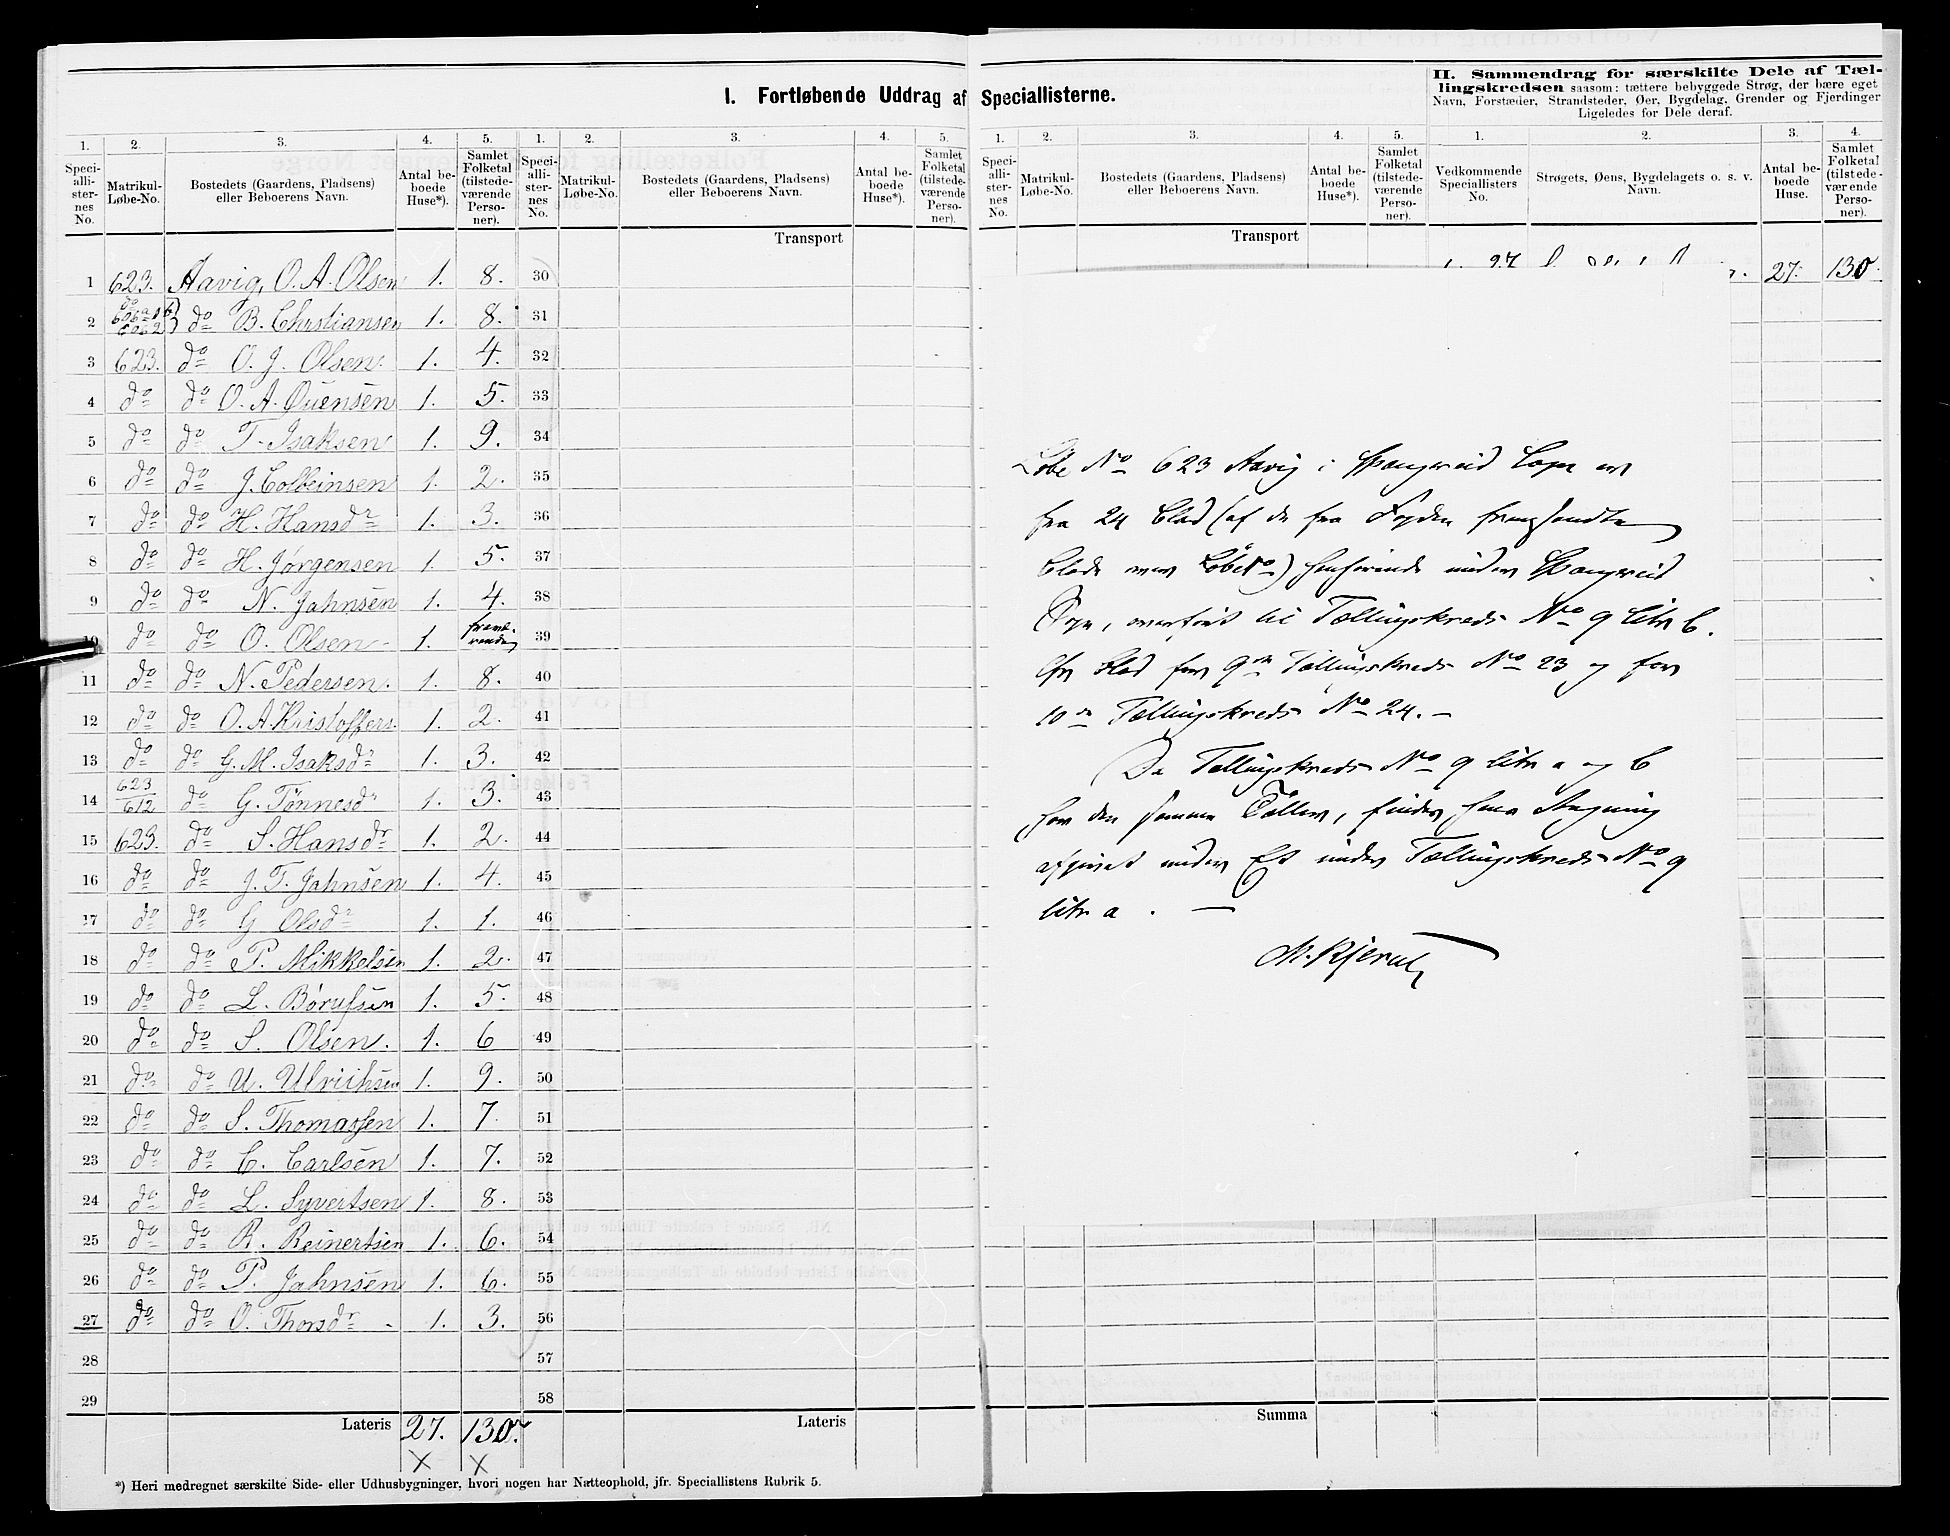 I. Fortløbende Uddrag af Speciallisterne.
II. Sammendrag for særskilte Dele af Tæl-
lingskredsen saasom: tættere bebyggede Strøg, der bære eget
Navn, Forstæder, Strandsteder, Øer, Bygdelag, Grender og Fjerdinger
Ligeledes for Dele deraf.
1. 2. 3. 4. 5. 1. 2. 3. 4. 5. 1. 2. 3. 4. 5. 1. 2. 3. 4.
Speci-
alli-
ster-
nes
No.
Matrikul-
Løbe-No.
Bostedets (Gaardens, Pladsens)
eller Beboerens Navn.
Antal be-
boede
Huse*).
Samlet
Folketal
(tilstede-
værende
Perso-
ner).
Speci-
alli-
ster-
nes
No.
Matrikul-
Løbe-No.
Bostedets (Gaardens, Pladsens)
eller Beboerens Navn.
Antal be-
boede
Huse*).
Samlet
Folketal
(tilstede-
værende
Perso-
ner).
Speci-
alli-
ster-
nes
No.
Matrikul-
Løbe-No.
Bostedets (Gaardens, Pladsens)
eller Beboerens Navn.
Antal be-
boede
Huse*).
Samlet
Folketal
(tilstede-
værende
Perso-
ner).
Vedkommende
Speciallisters
No.
Strøgets, Øens, Bygdelagets o. s. v.
Navn.
Antal be-
boede
Huse.
Samlet
Folketal
(tilstede-
værende
Perso-
ner).
Transport
Transport
1 623. Aavig, O. A. Olsen 1. 8. 30
27. 130.
2 do B. Christiansen 1. 8. 31
3 623. do O. J. Olsen. 1. 4. 32
4 do do O. A. Øuensen 1. 5. 33
5 do do T. Isaksen 1. 9. 34
6 do do J. Colbeinsen 1. 2. 35
7 do do H. Hansdr 1. 3. 36
8 do do H. Jørgensen 1. 5. 37
9 do do N. Jahnsen 1. 4. 38
10 do do O. Olsen - 1. 39
11 do do N. Pedersen. 1. 8. 40
12 do do O. A. Kristoffers. 1. 2. 41
13 do do G. M. Isaksdr 1. 3. 42
14 623/612 do G. Tønnesdr 1. 3. 43
15 623. do S. Hansdr 1. 2. 44
16 do do J. T. Jahnsen 1. 4. 45
17 do do G Olsdr 1. 1. 46
18 do do P. Mikkelsen 1. 2. 47
19 do do L. Børufsen 1. 5. 48
20 do do S. Olsen. 1. 6 49
21 do do U. Ulrichsen 1. 9. 50
22 do do S. Thomassen 1. 7. 51
23 do do C. Carlsen 1. 7. 52
24 do do L. Syvertsen 1. 8. 53
25 do do R. Reinertsen 1. 6. 54
26 do do P. Jahnsen 1. 6. 55
27 do do O. Thorsdr - 1. 3. 56
28 57
29 58
Lateris 27. 130. Lateris Summa
*) Heri medregnet særskilte Side- eller Udhusbygninger, hvori nogen har Natteophold, jfr. Speciallistens Rubrik 5.
Løbe No 623 Aavig i Spangereid Sogn er
fra 24 Blad (af de fra Fogden fremsendte
Blade over LøbeNo) henhørende under Spangereid
Sogn, overført til Tællingskreds No 9 litr b.
Cfr Blad for 9de Tællingskreds No 23 og for
10de Tællingskreds No 24. -
Da Tællingskreds No 9 litr a og b
har den samme Tæller, findes hans
afgivet under Et under Tællingskreds No 9
litr a. -